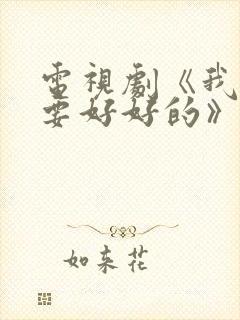 電視劇《我
要好好的》
如来花